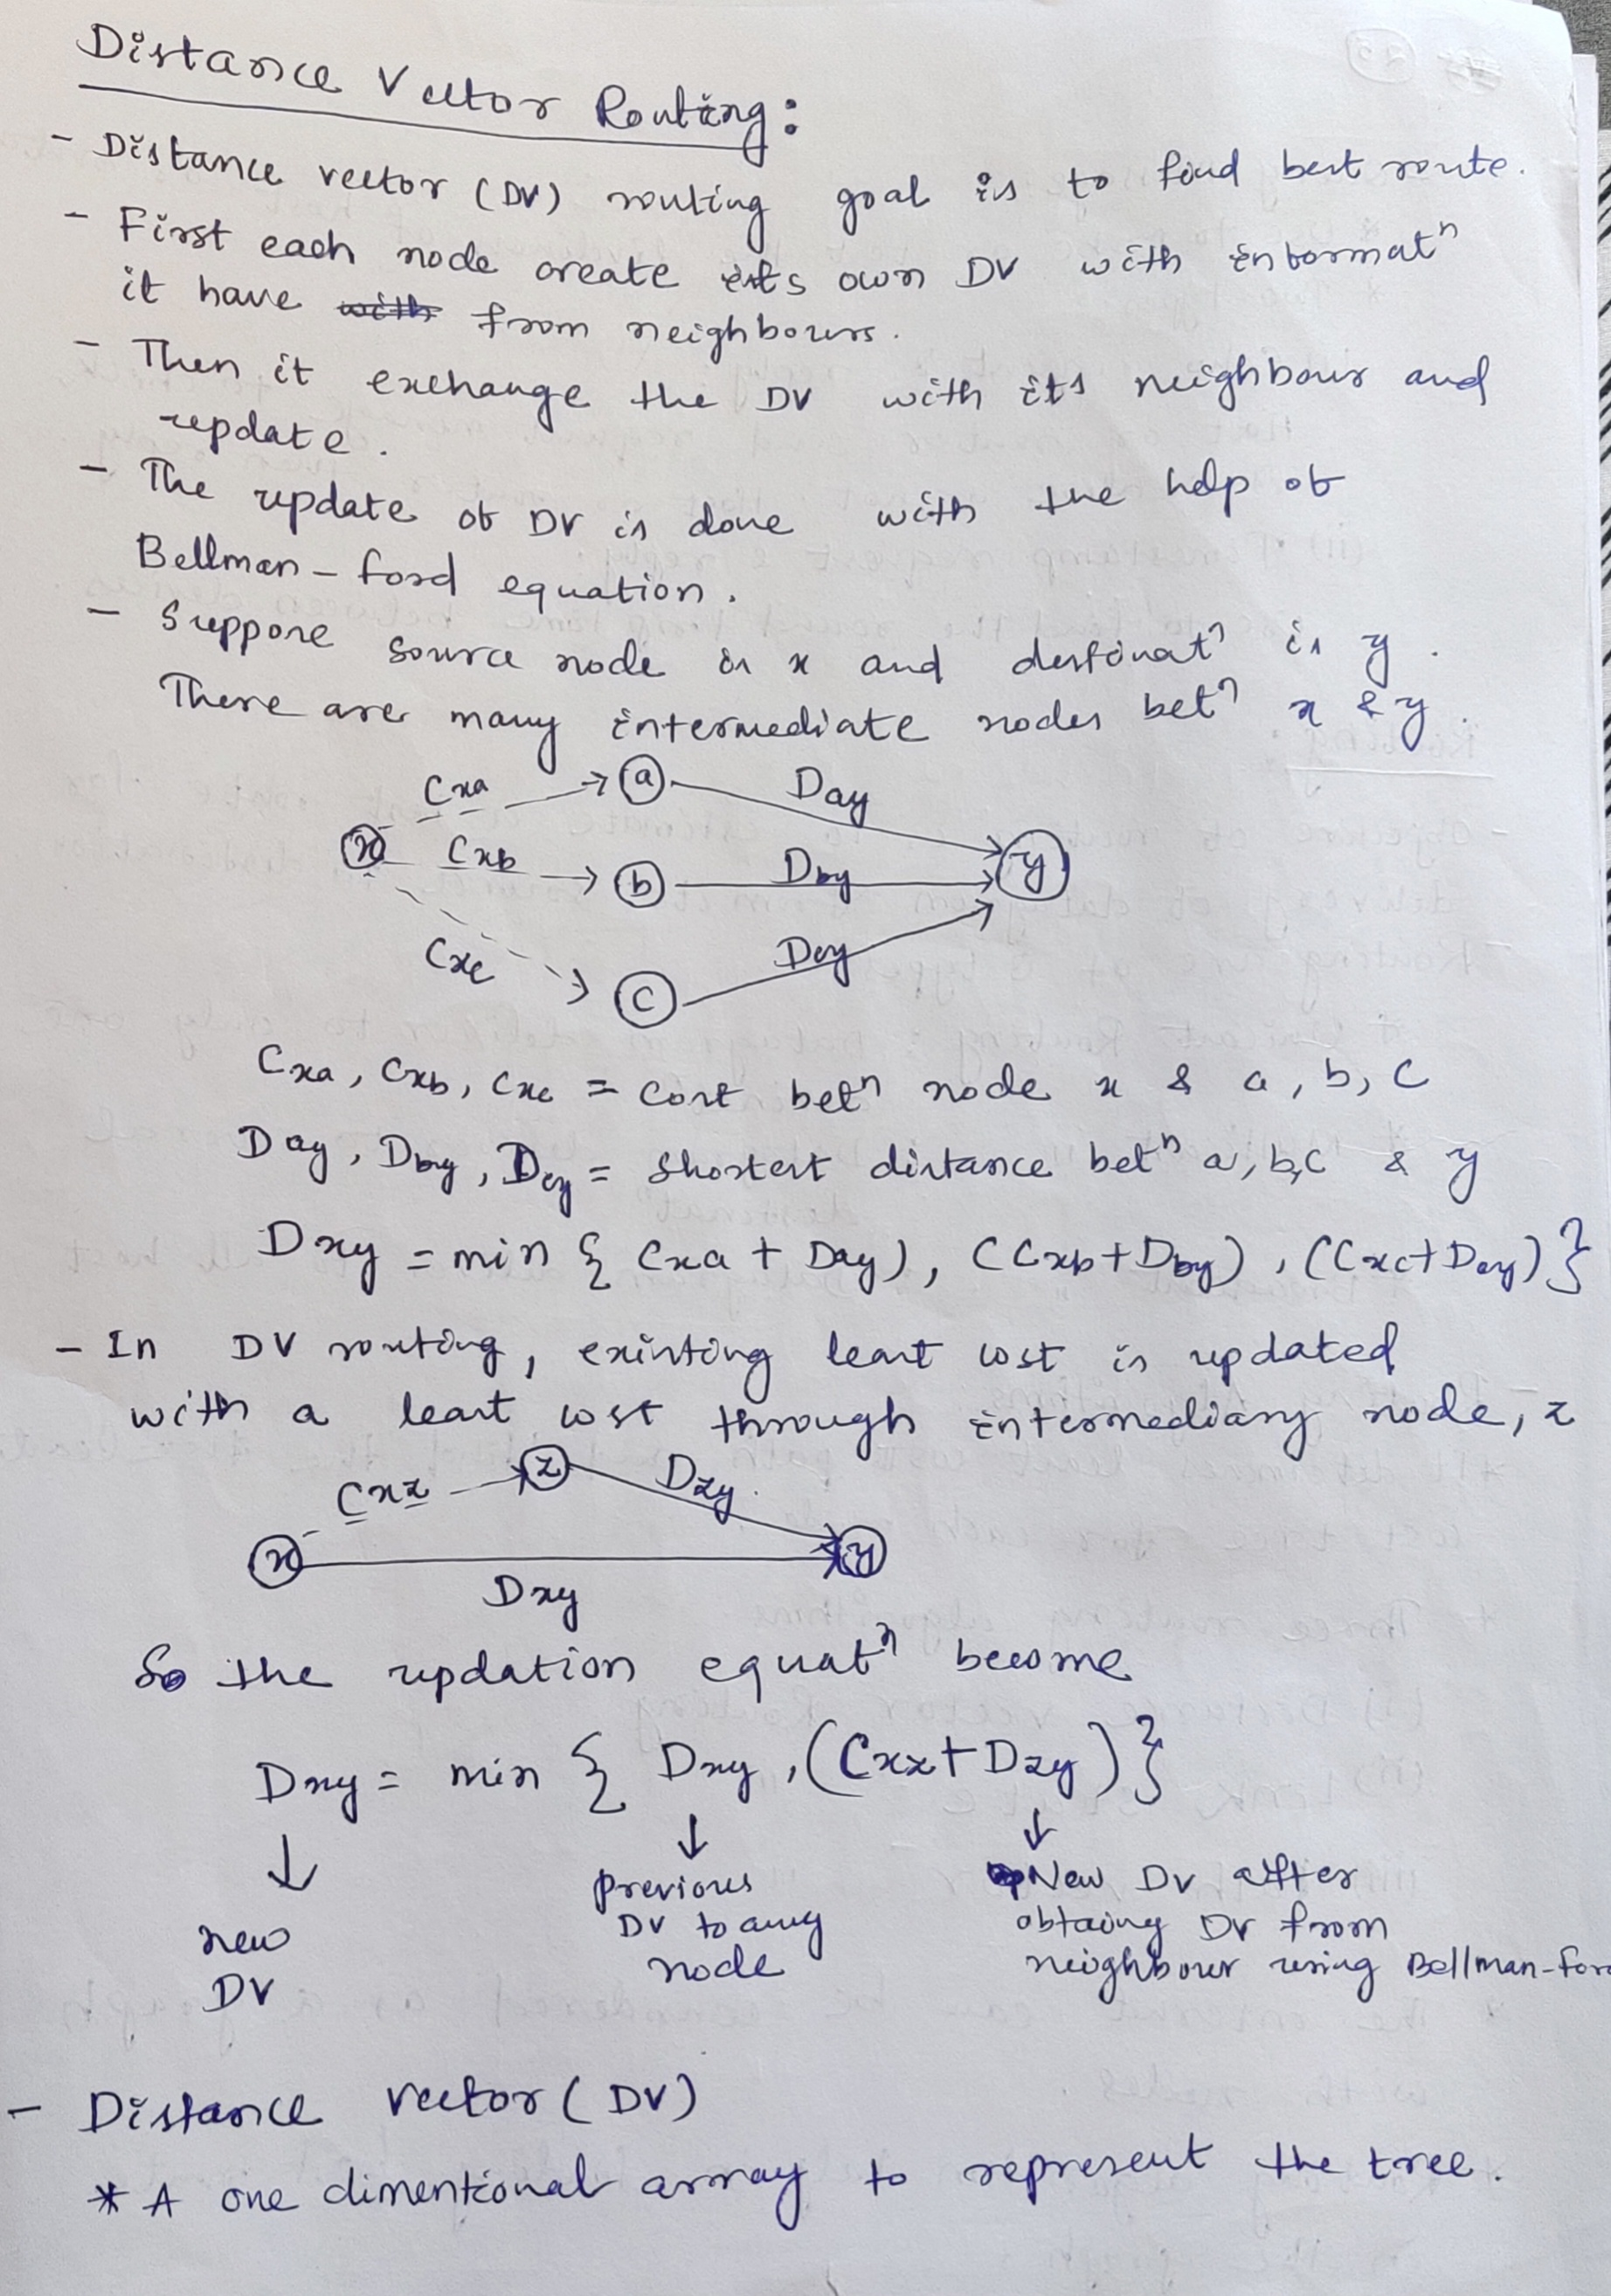 Distance Vector Routing:
- Distance vector (DV) routing goal is to find best route.
- First each node create its own DV with informatⁿ
it have with from neighbours.
- Then it exchange the DV with its neighbour and
update.
- The update of DV is done with the help of
Bellman-ford equation.
- Suppose source node is x and destinatⁿ is y.
There are many intermediate nodes betⁿ x & y.
Cxa → a Day
x Cxb → b Dby y
Cxc → c Dcy
Cxa, Cxb, Cxc = Cost betⁿ node x & a, b, c
Day, Dby, Dcy = Shortest distance betⁿ a, b, c & y
Dxy = min { Cxa + Day), (Cxb + Dby), (Cxc + Dcy) }
- In DV routing, existing least cost is updated
with a least cost through intermediary node, z
Cxz → z Dzy
x y
Dxy
So the updation equatⁿ become
Dxy = min { Dxy, (Cxz + Dzy) }
↓ ↓ ↓
new DV
previous DV to any node
New DV after
obtaing DV from
neighbour using Bellman-for
- Distance vector (DV)
* A one dimentional array to represent the tree.